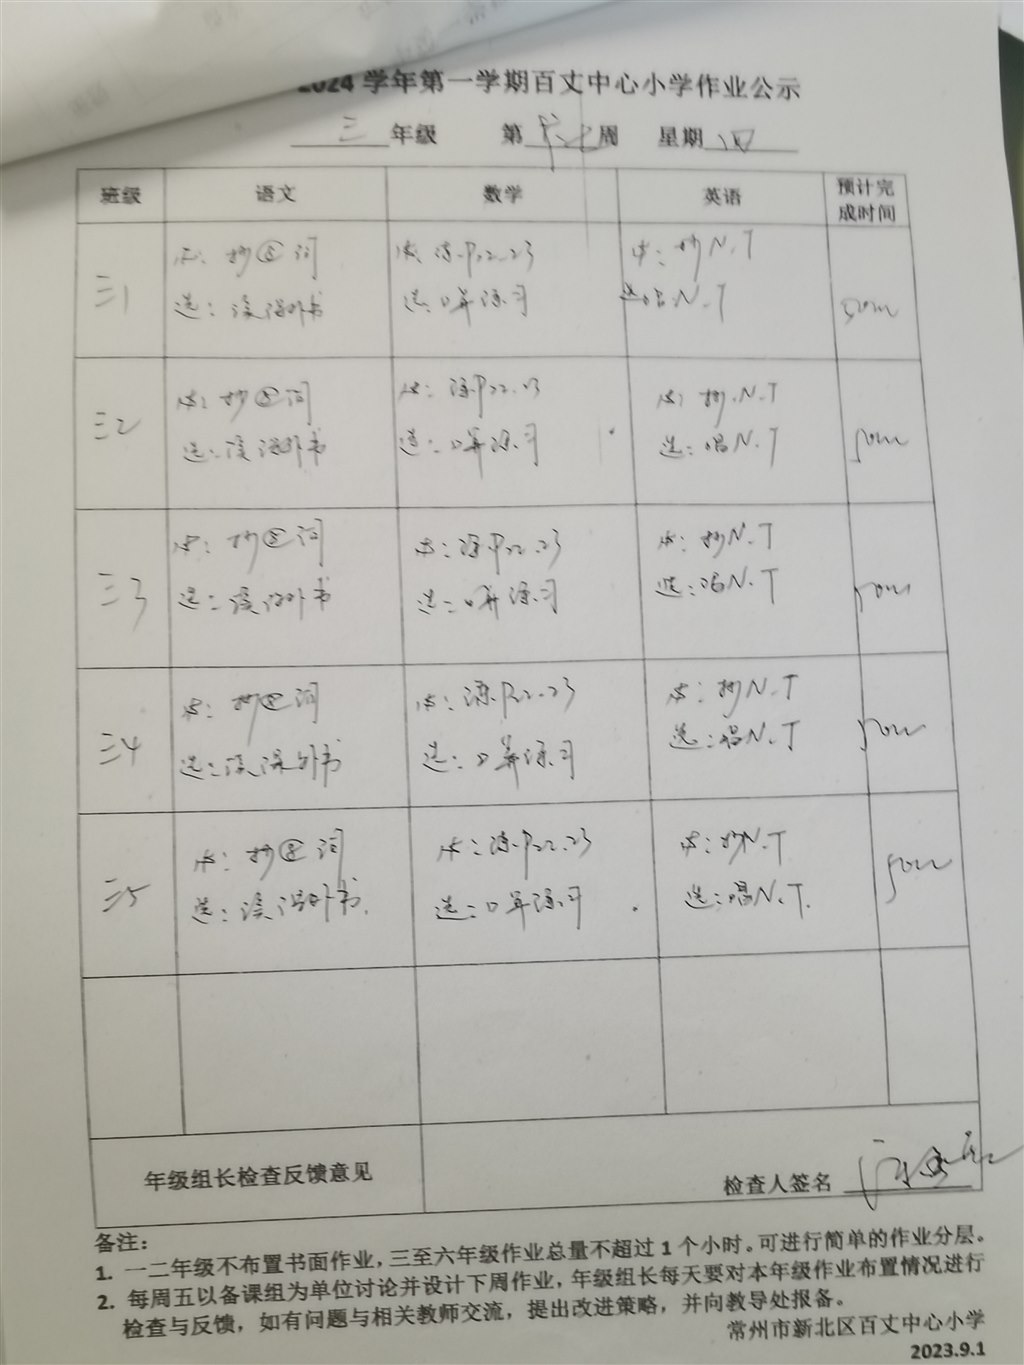 2024 学年第一学期百丈中心小学作业公示
三 年级 第 周 星期 四
班级 语文 数学 英语 预计完成时间
三1 抄⑧词 练P22.23 抄N.T
选：读课外书 选：口算练习 选：唱N.T 50m
三2 抄⑧词 练P22.23 抄N.T
选：读课外书 选：口算练习 选：唱N.T 50m
三3 抄⑧词 练P22.23 抄N.T
选：读课外书 选：口算练习 选：唱N.T 50m
三4 抄⑧词 练P22.23 抄N.T
选：读课外书 选：口算练习 选：唱N.T 50m
三5 抄⑧词 练P22.23 抄N.T
选：读课外书. 选：口算练习 选：唱N.T. 50m
年级组长检查反馈意见 检查人签名
备注：
1. 一二年级不布置书面作业，三至六年级作业总量不超过 1 个小时。可进行简单的作业分层。
2. 每周五以备课组为单位讨论并设计下周作业，年级组长每天要对本年级作业布置情况进行
检查与反馈，如有问题与相关教师交流，提出改进策略，并向教导处报备。
常州市新北区百丈中心小学
2023.9.1